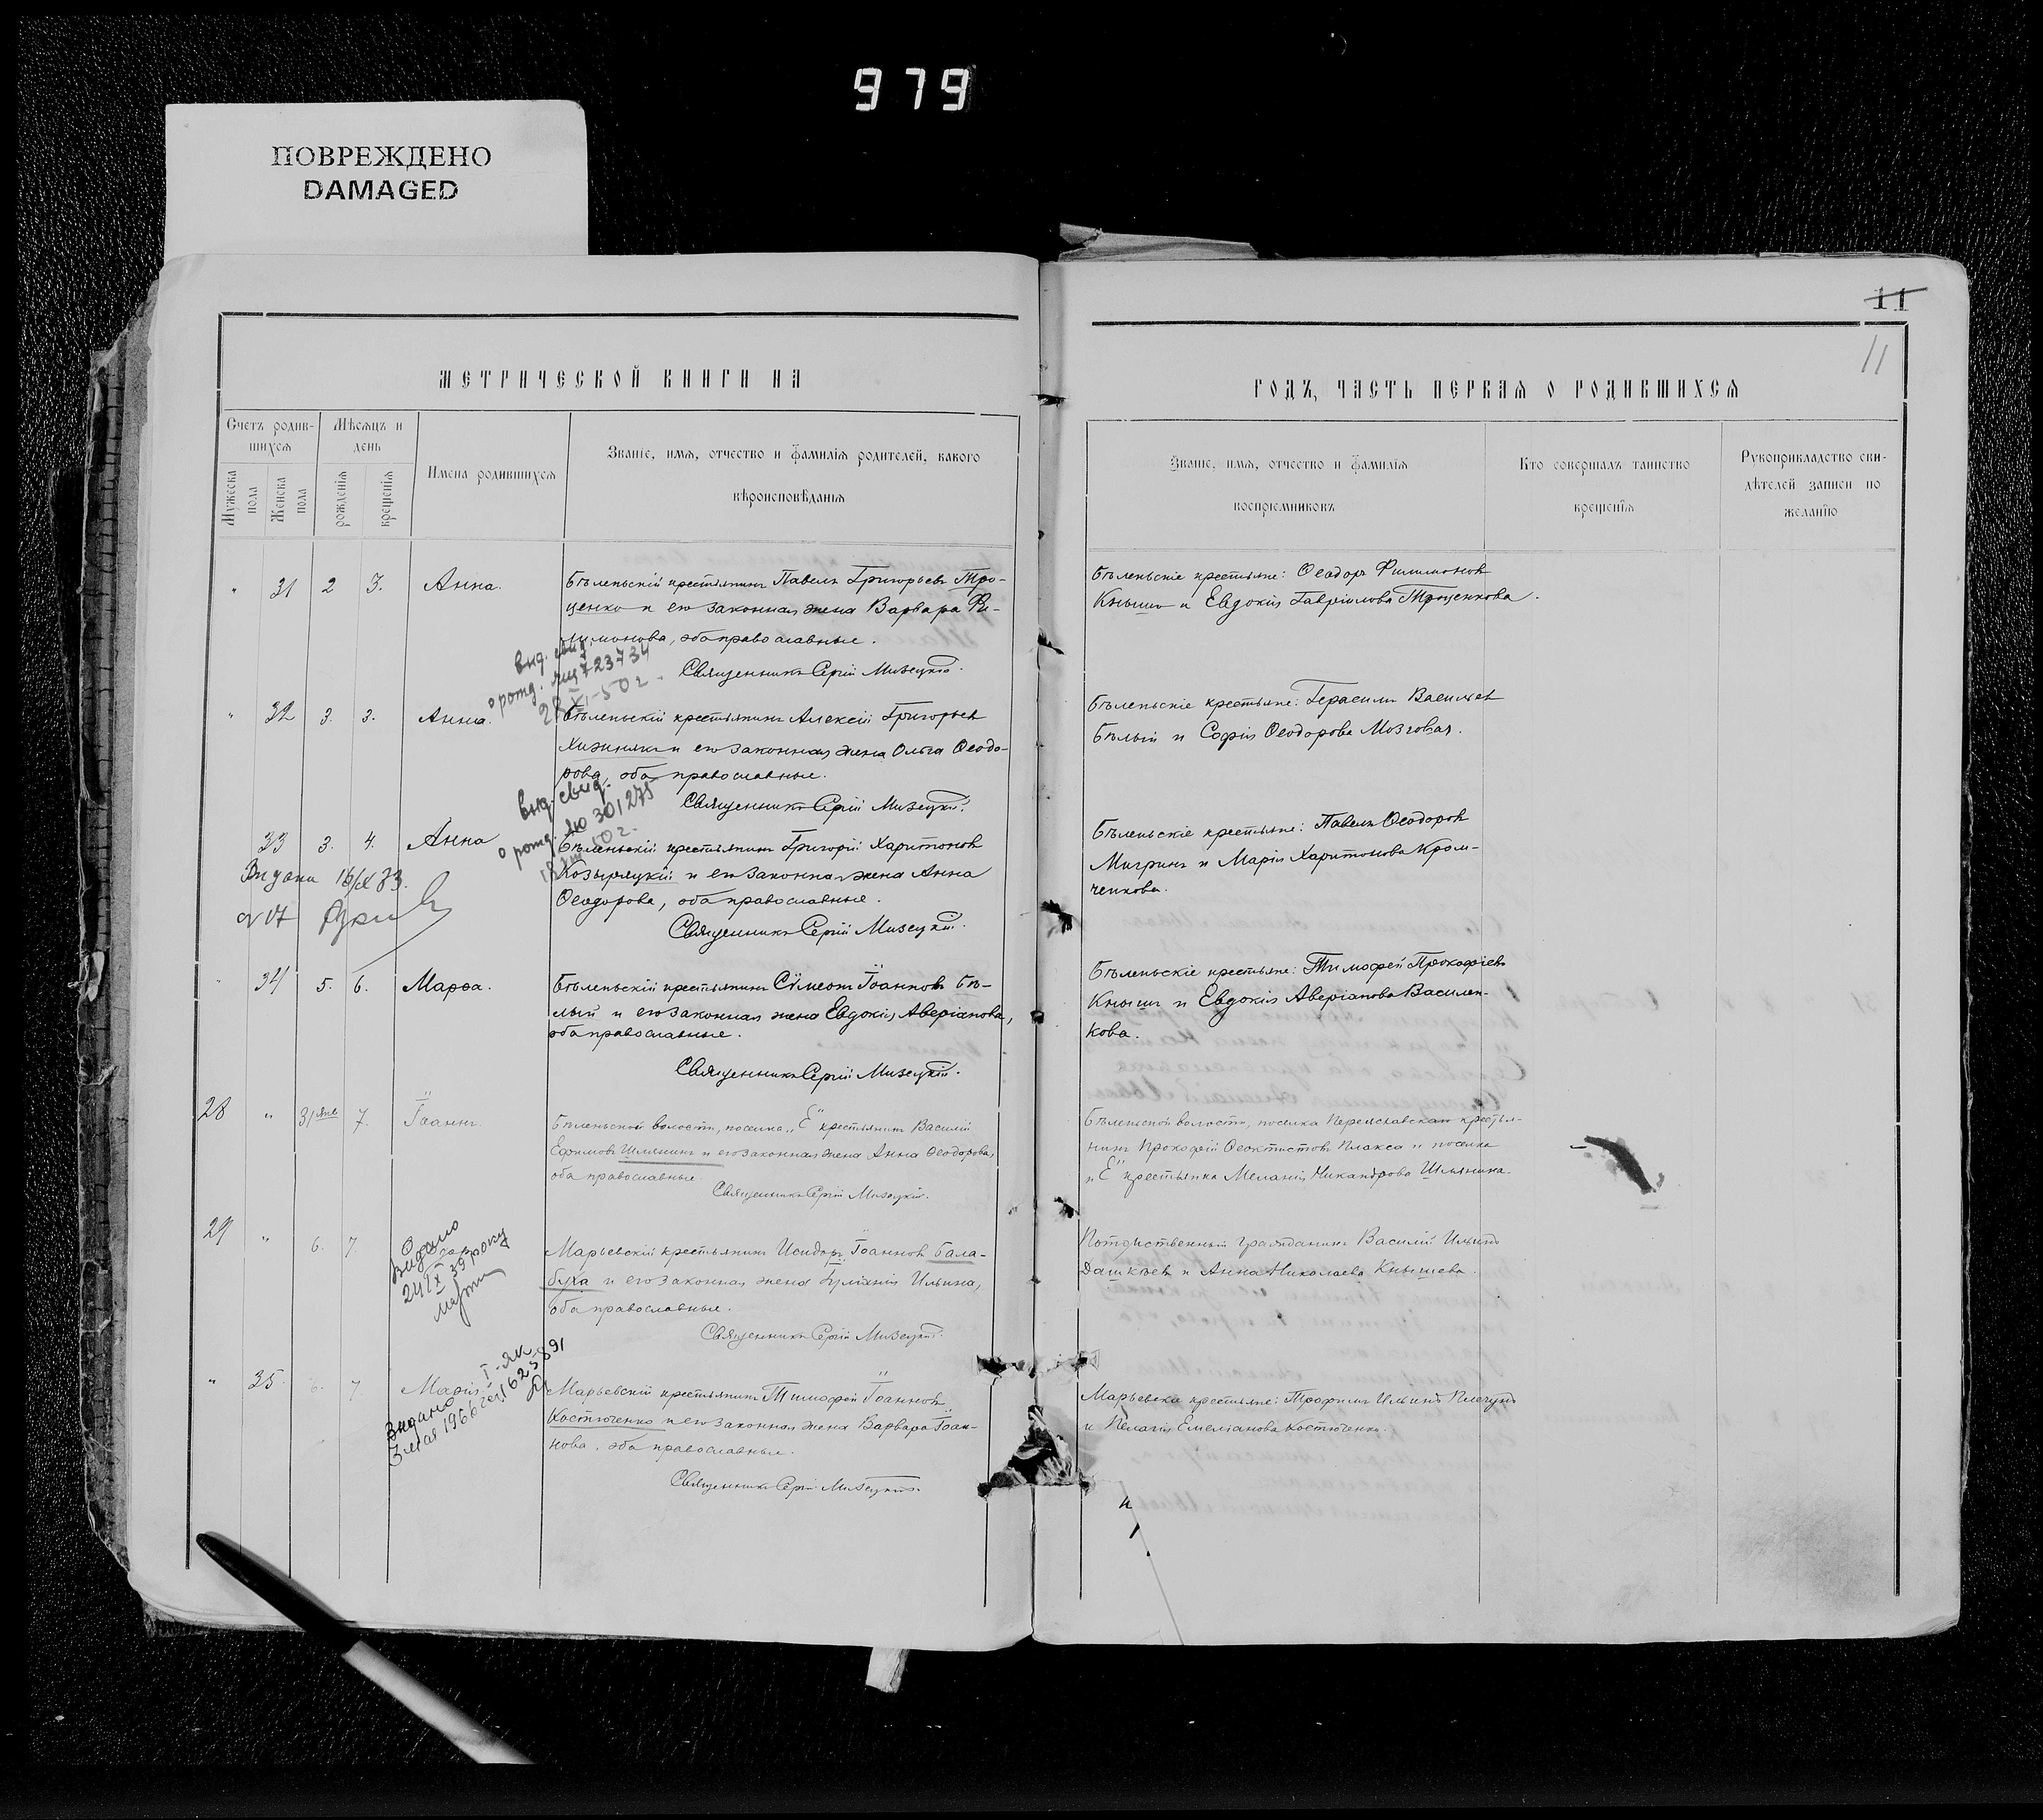 979
ПОВРЕЖДЕНО
DAMAGED
11
11
МЕТРИЧЕСКОЙ КНИГИ НА
ГОДЪ, ЧАСТЬ ПЕРВАЯ О РОДИВШИХСЯ
Счетъ родив-
шихся
Мужеска
пола
Женска
пола
Мѣсяцъ и
день
рожденія
крещенія
Имена родившихся
Званіе, имя, отчество и фамилія родителей, какого
вѣроисповѣданія
Званіе, имя, отчество и фамилія
воспріемниковъ
Кто совершалъ таинство
крещенія
Рукоприкладство сви-
дѣтелей записи по
желанію
" 31 2 3. Анна.
Бѣленьскій крестьянинъ Павелъ Григорьевъ Тро-
ценко и его законная жена Варвара Фи-
лимонова, оба православные.
Священникъ Сергій Мизецкій.
Бѣленьскіе крестьяне: Ѳеодоръ Филимоновъ
Кнышъ и Евдокія Гавріилова Троценкова.
выд. свид.
о рожд. 723734
28 XI-50 г.
" 32 3. 3. Анна.
Бѣленьскій крестьянинъ Алексій Григорьевъ
Хижнякъ и его законная жена Ольга Ѳеодо-
рова, оба православные.
Священникъ Сергій Мизецкій.
Бѣленьскіе крестьяне: Герасимъ Васильевъ
Бѣлый и Софія Ѳеодорова Мозговая.
выд. свид.
о рожд. ЯЮ 301275
50 г.
33 3. 4. Анна
Бѣленьскій крестьянинъ Григорій Харитоновъ
Козыряцкій и его законная жена Анна
Ѳеодорова, оба православные.
Священникъ Сергій Мизецкій.
Бѣленьскіе крестьяне: Павелъ Ѳеодоровъ
Мигринъ и Марія Харитонова Кром-
ченкова.
" 34 5. 6. Марѳа.
Бѣленьскій крестьянинъ Сѵмеонъ Іоанновъ Бѣ-
лый и его законная жена Евдокія Аверіанова,
оба православные.
Священникъ Сергій Мизецкій.
Бѣленьскіе крестьяне: Тимофей Прокофіевъ
Кнышъ и Евдокія Аверіанова Василен-
кова.
28 " 31 янв 7. Іоаннъ.
Бѣленьской волости, поселка „Е" крестьянинъ Василій
Ефимовъ Шлянинъ и его законная жена Анна Ѳеодорова,
оба православные.
Священникъ Сергій Мизецкій.
Бѣленьской волости, поселка Переяславскаго крестья-
нинъ Прокофій Ѳеоктистовъ Плакса и поселка
„Е" крестьянка Меланія Никандрова Шлянина.
29 " 6. 7.
Видано
Марьевскій крестьянинъ Исидоръ Іоанновъ Бала-
буха и его законная жена Іуліанія Ильина,
оба православные.
Священникъ Сергій Мизецкій.
Потомственный гражданинъ Василій Ильинъ
Дашкѣевъ и Анна Николаева Кнышева.
" 35. 6. 7. Марія
Видано
3 мая 1966
Марьевскій крестьянинъ Тимофей Іоанновъ
Костюченко и его законная жена Варвара Іоан-
нова, оба православные.
Священникъ Сергій Мизецкій.
Марьевска крестьяне: Трофимъ Ильинъ Плечунъ
и Пелагія Емеліанова Костюченко.